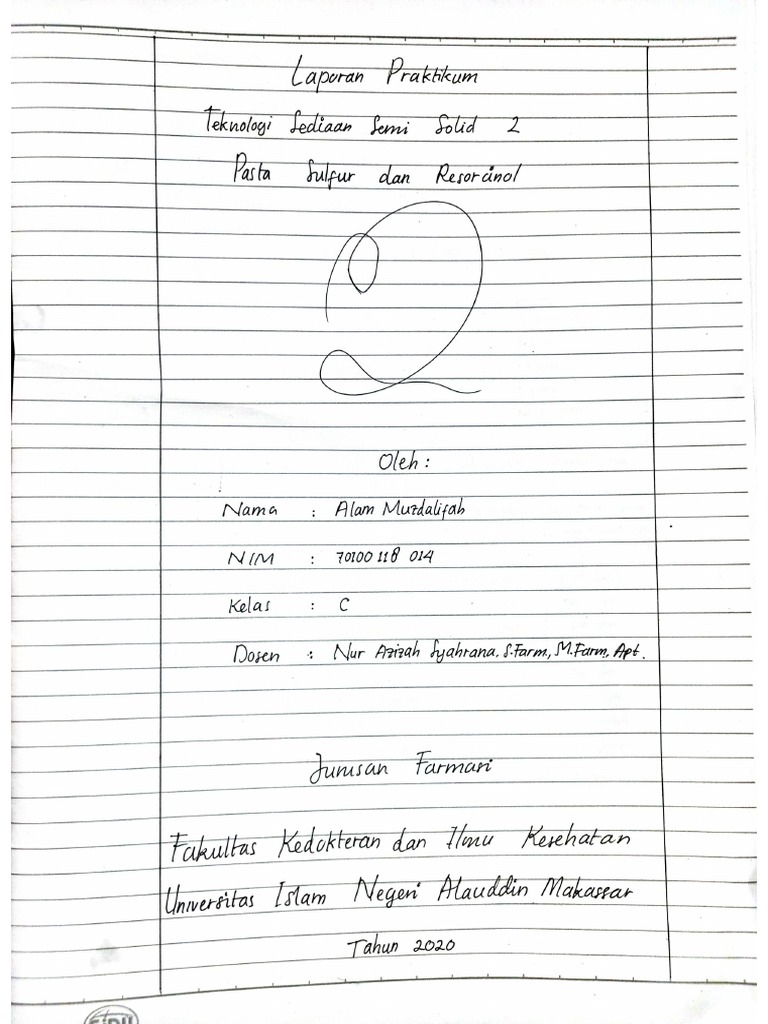 Laporan Praktikum
Teknologi Sediaan Semi Solid 2
Pasta Sulfur dan Resorcinol
Oleh :
Nama : Alam Muzdalifah
NIM : 70100 118 014
Kelas : C
Dosen : Nur Azizah Syahrana. S.Farm, M.Farm, Apt.
Jurusan Farmasi
Fakultas Kedokteran dan Ilmu Kesehatan
Universitas Islam Negeri Alauddin Makassar
Tahun 2020